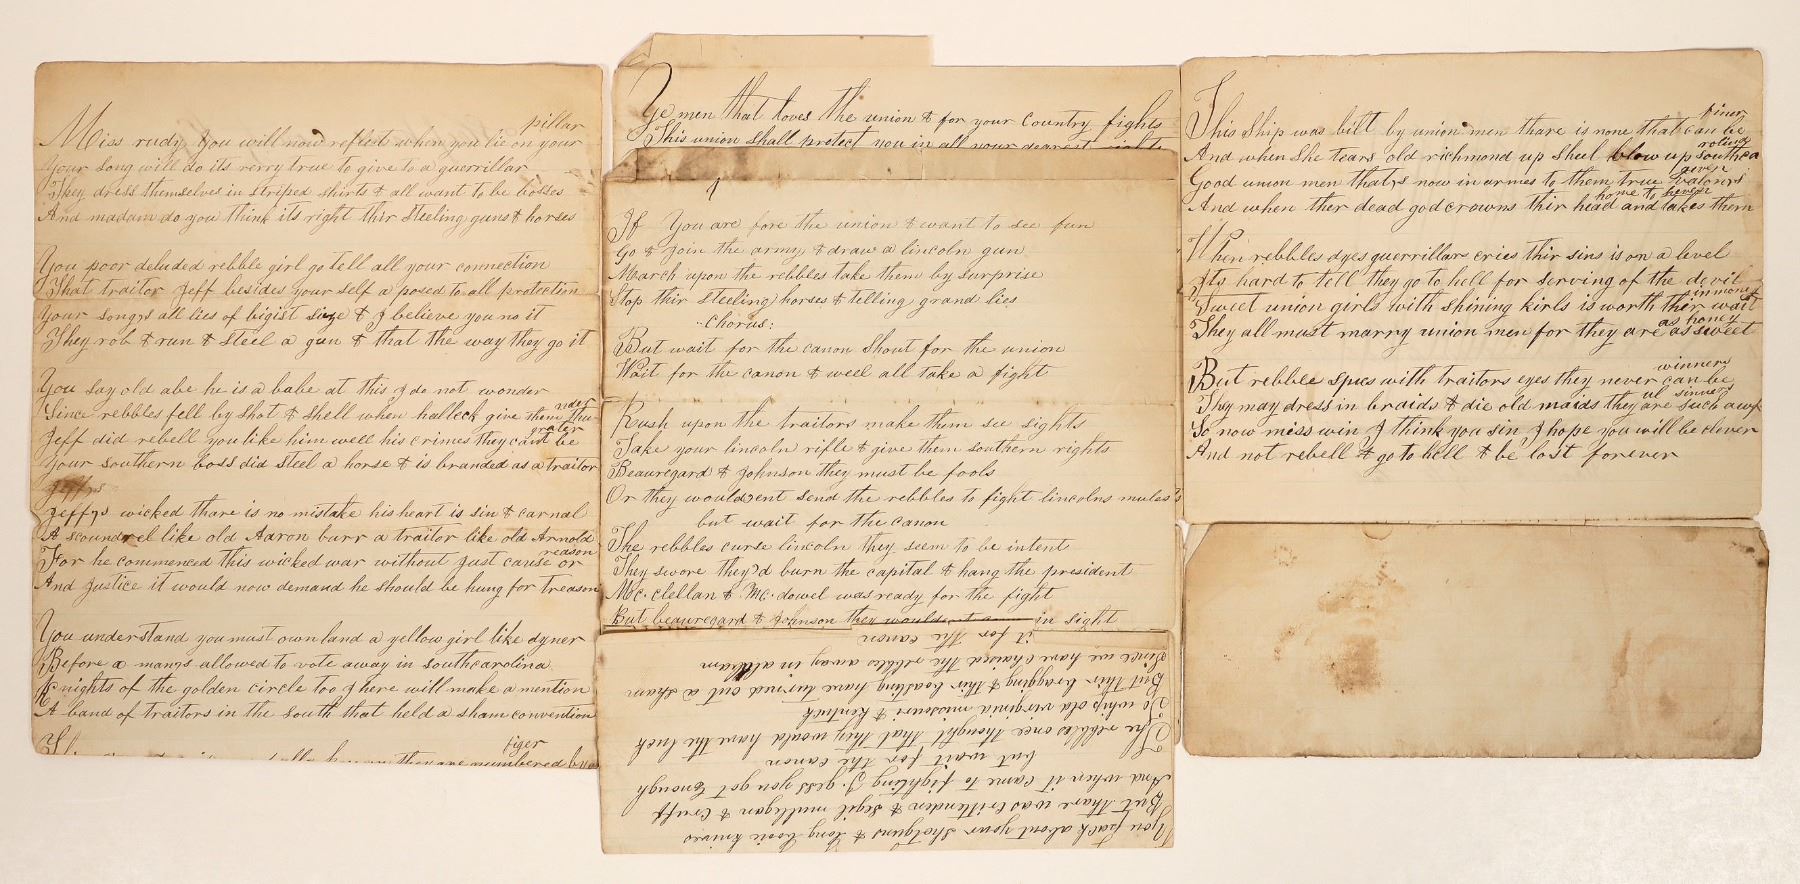 pillar
Miss rudy You will now reflect when you lie on your
Your song will do its verry true to give to a guerrillar
They dress themselves in striped shirts & all want to be bosses
And madam do you think its right thir steeling guns & horses
You poor deluded rebble girl go tell all your connection
That traitor Jeff besides your self a posed to all protection
Your songs all lies of bigist size & I believe you no it
They rob & run & steel a gun & that the way they go it
You say old abe he is a babe at this I do not wonder
Since rebbles fell by shot & shell when halleck give them thu nder
grater
Jeff did rebell you like him well his crimes they cant be
Your southern boss did steel a horse & is branded as a traitor
Jeffys
Jeffys wicked thare is no mistake his heart is sin & carnal
A scoundrel like old Aaron burr a traitor like old Arnold
reason
For he commenced this wicked war without just cause or
And justice it would now demand he should be hung for treason
You understand you must own land a yellow girl like dyner
Before a mans allowed to vote away in southcarolina
Knights of the golden circle too I here will make a mention
A band of traitors in the south that held a sham convention
tiger
they are numbered
Ye men that loves the union & for your country fights
This union shall protect you in all your dearest rights
1
If You are fore the union & want to see fun
Go & join the army & draw a lincoln gun
March upon the rebbles take them by surprise
Stop thir steeling horses & telling grand lies
Chorus:
But wait for the canon shout for the union
Wait for the canon & weel all take a fight
Rush upon the traitors make them see sights
Take your lincoln rifle & give them southern rights
Beauregard & Johnson they must be fools
Or they would,ent send the rebbles to fight lincolns mules
but wait for the canon
The rebbles curse lincoln they seem to be intent
They swore they,d burn the capital & hang the president
Mc. clellan & Mc. dowel was ready for the fight
But beauregard & Johnson they would,ent come in sight
it for the canon
You talk about your shotguns & long booie knives
But thare was crittenden & Sigil mulligan & Cruff
And when it came to fighting I gess you got Enough
but wait for the canon
The rebbles once thought that they would have the luck
To whip old virginia missouri & kentuck
But thir bragging & thir boasting have turned out a sham
Since we have chased the rebbles away in aldram
finer
This ship was bilt by union men thare is none that can be
roliner
And when she tears old richmond up sheel blow up southca
given
Good union men thats now in armes to them true valor,s
home to heven
And when ther dead god crowns thir head and takes them
When rebbles dyes guerrillar cries thir sins is on a level
Its hard to tell they go to hell for serving of the devil
in money
Sweet union girls with shining kirls is worth their wait
as honey
They all must marry union men for they are as sweet
winners
But rebble spies with traitors eyes they never can be
ul sinners
They may dress in braids & die old maids they are such awf
So now miss win I think you sin I hope you will be clever
And not rebell & go to hell & be lost forever